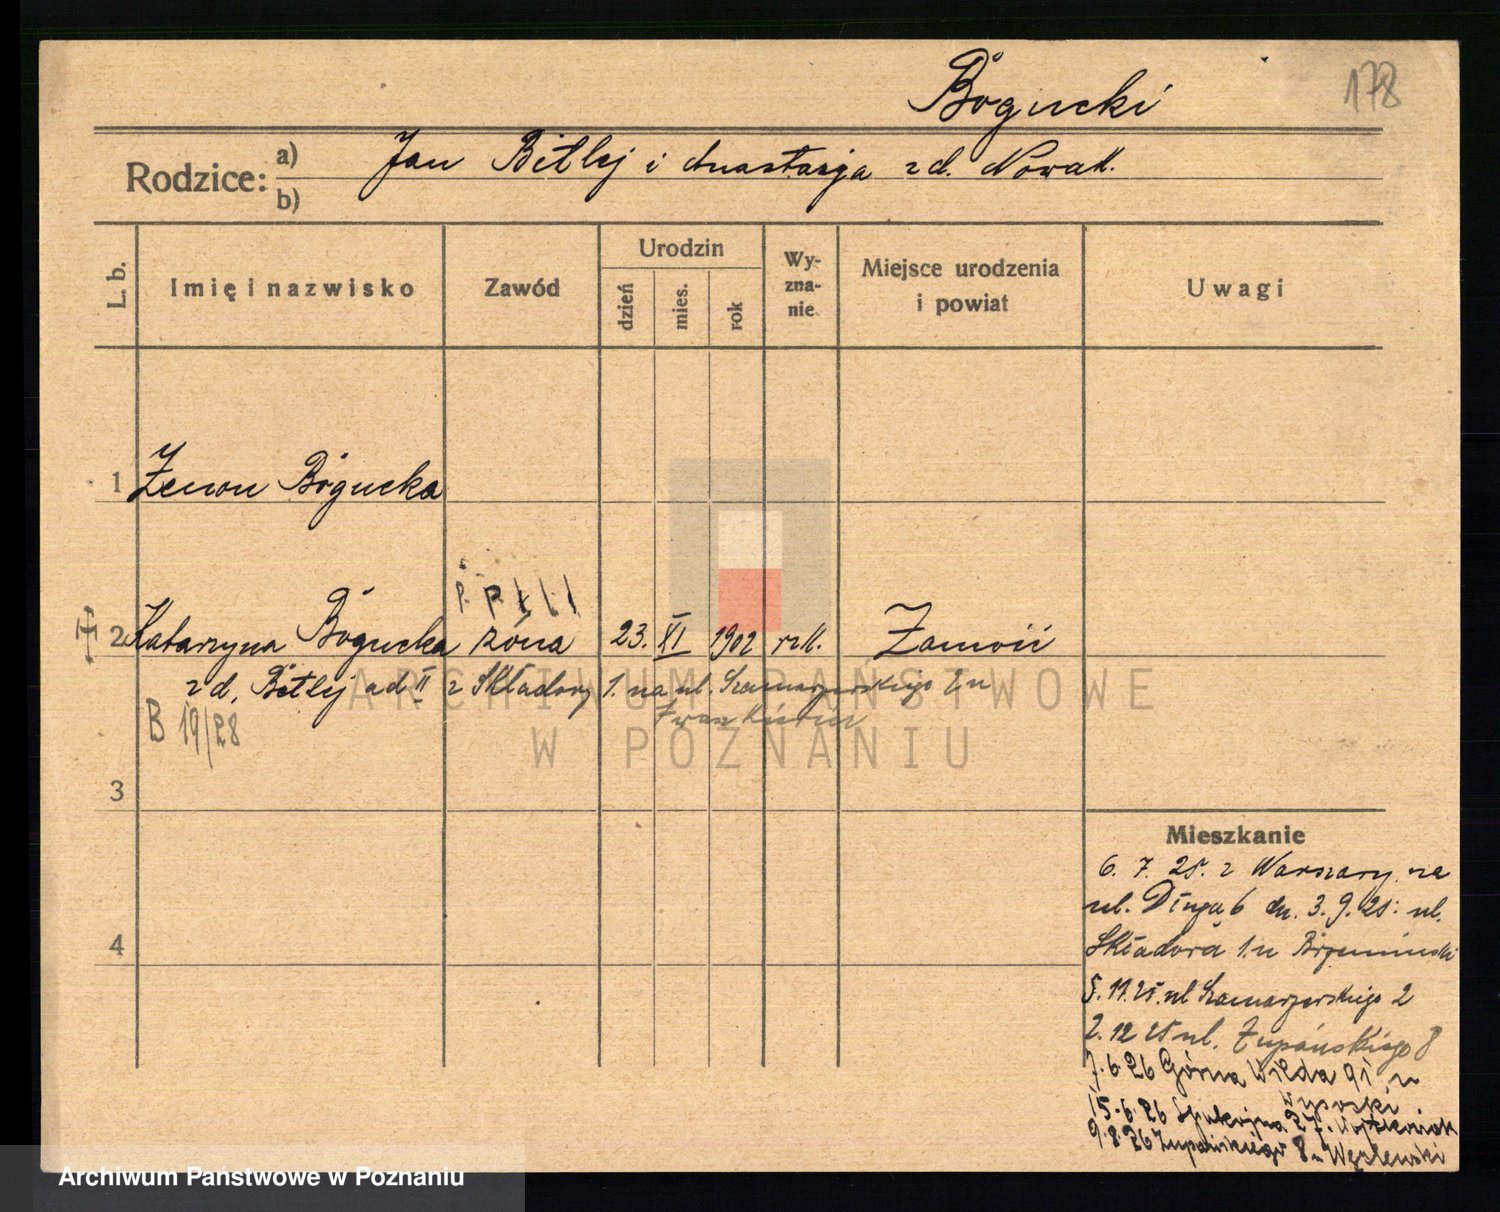 Bogucki
178
Rodzice: a) Jan Bitlej i Anastazja z d. Nowak.
b)
L. b.
Imię i nazwisko
Zawód
Urodzin
dzień
mies.
rok
Wy-
zna-
nie
Miejsce urodzenia
i powiat
Uwagi
1 Zenon Bogucka
2 Katarzyna Bogucka żona 23. XI 1902 rz.k. Zamość
z d. Bitlej ad II z Składowy 1. na ul. Szamarzewskiego 2 u
B 19/28
3
4
Mieszkanie
6. 7. 25. z Warszawy na
ul. Długą 6 dn. 3. 9. 25. ul.
Składowa 1. u
5. 11. 25. ul Szamarzewskiego 2
2. 12 25 ul. Żupańskiego 8
7. 6 26 Górna Wilda 91 u
Wysocki
15. 6. 26 Spokojna 27.
9. 8. 26 Żupańskiego 8 u Węclewski
ARCHIWUM PAŃSTWOWE
W POZNANIU
Archiwum Państwowe w Poznaniu